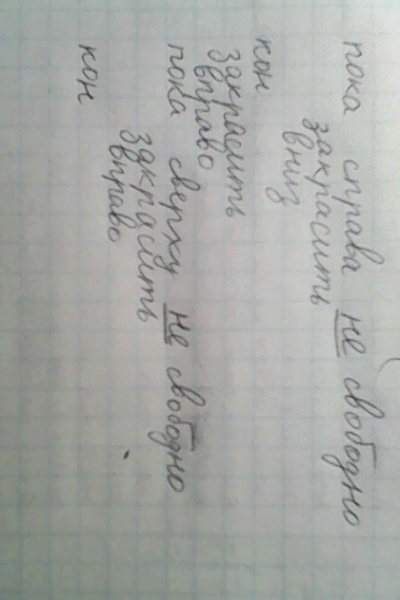 пока справа не свободно
закрасить
вниз
кон
закрасить
вправо
пока сверху не свободно
закрасить
вправо
кон